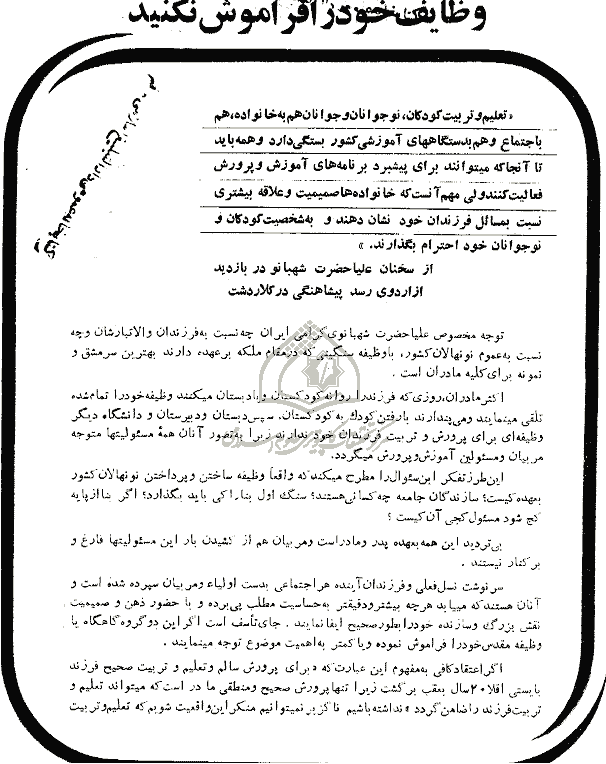 وظایف خود را فراموش نکنید
« تعلیم و تربیت کودکان، نوجوانان و جوانان هم به خانواده، هم
باجتماع و هم بدستگاههای آموزشی کشور بستگی دارد و همه باید
تا آنجا که میتوانند برای پیشبرد برنامه‌های آموزش و پرورش
فعالیت کنند ولی مهم آنست که خانواده‌ها صمیمیت و علاقه بیشتری
نسبت بمسائل فرزندان خود نشان دهند و به شخصیت کودکان و
نوجوانان خود احترام بگذارند. »
از سخنان علیاحضرت شهبانو در بازدید
از اردوی رسد پیشاهنگی در کلاردشت
توجه مخصوص علیاحضرت شهبانوی گرامی ایران چه نسبت به فرزندان والاتبارشان و چه
نسبت به عموم نونهالان کشور، با وظیفه سنگینی که در مقام ملکه برعهده دارند بهترین سرمشق و
نمونه برای کلیه مادران است .
اکثر مادران، روزی که فرزند را روانه کودکستان و یا دبستان میکنند وظیفه خود را تمام شده
تلقی مینمایند و می‌پندارند با رفتن کودک به کودکستان، سپس دبستان و دبیرستان و دانشگاه دیگر
وظیفه‌ای برای پرورش و تربیت فرزندان خود ندارند زیرا به تصور آنان همهٔ مسئولیتها متوجه
مربیان و مسئولین آموزش و پرورش میگردد.
این طرز تفکر این سئوال را مطرح میکند که واقعاً وظیفه ساختن و پرداختن نونهالان کشور
بعهده کیست؛ سازندگان جامعه چه کسانی هستند؛ سنگ اول بنا را کی باید بگذارد؛ اگر بنا از پایه
کج شود مسئول کجی آن کیست ؟
بی‌تردید این همه بعهده پدر و مادر است و مربیان هم از کشیدن بار این مسئولیتها فارغ و
برکنار نیستند .
سرنوشت نسل فعلی و فرزندان آینده هر اجتماعی بدست اولیاء و مربیان سپرده شده است و
آنان هستند که میباید هر چه بیشتر و دقیقتر به حساسیت مطلب پی برده و با حضور ذهن و صمیمیت
نقش بزرگ و سازنده خود را بطور صحیح ایفا نمایند . جای تأسف است اگر این دو گروه گاهگاه یا
وظیفه مقدس خود را فراموش نموده و یا کمتر به اهمیت موضوع توجه مینمایند .
اگر اعتقاد کافی به مفهوم این عبارت که « برای پرورش سالم و تعلیم و تربیت صحیح فرزند
بایستی اقلا ۲۰ سال بعقب برگشت زیرا تنها پرورش صحیح و منطقی مادر است که میتواند تعلیم و
تربیت فرزند را ضامن گردد » نداشته باشیم ناگزیر نمیتوانیم منکر این واقعیت شویم که تعلیم و تربیت